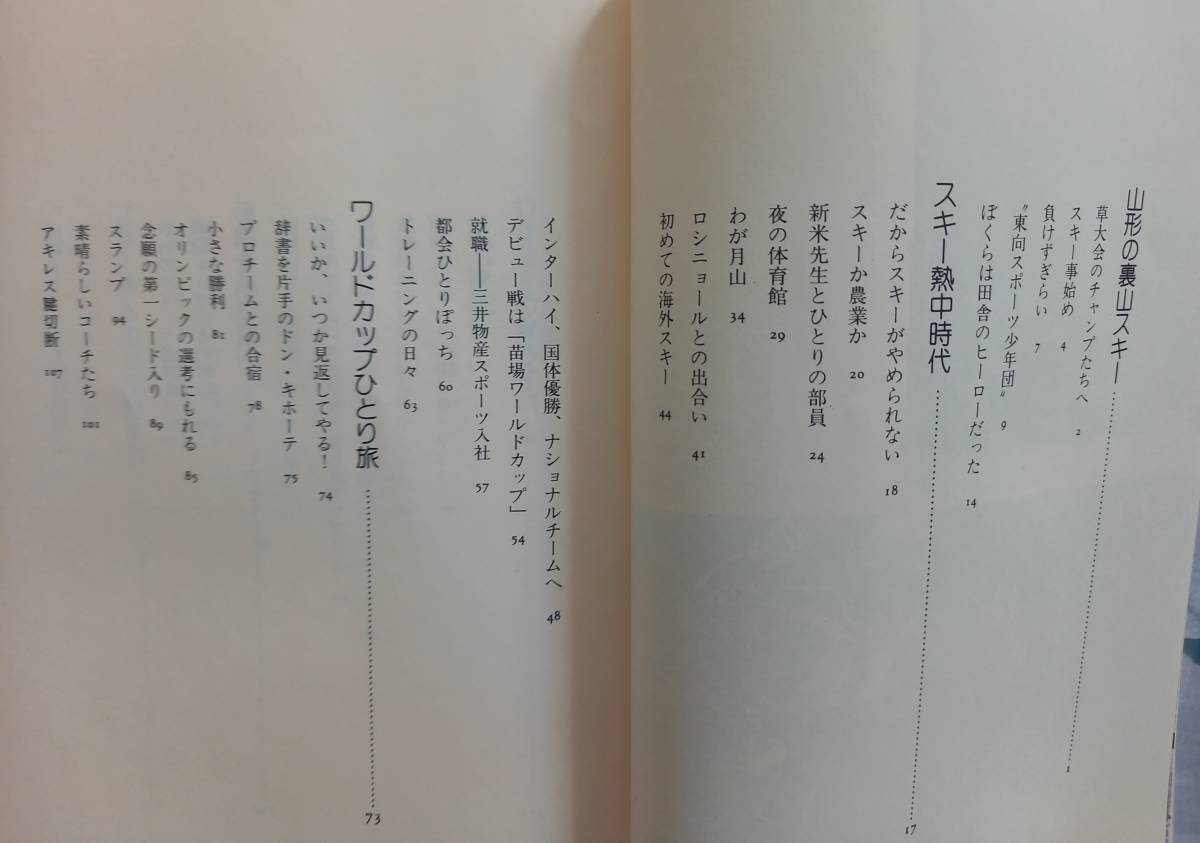 山形の裏山スキー……………………1
草大会のチャンプたちへ 2
スキー事始め 4
負けずぎらい 7
〝東向スポーツ少年団〟 9
ぼくらは田舎のヒーローだった 14
スキー熱中時代……………………17
だからスキーがやめられない 18
スキーか農業か 20
新米先生とひとりの部員 24
夜の体育館 29
わが月山 34
ロシニョールとの出合い 41
初めての海外スキー 44
インターハイ、国体優勝、ナショナルチームへ 48
デビュー戦は「苗場ワールドカップ」 54
就職――三井物産スポーツ入社 57
都会ひとりぼっち 60
トレーニングの日々 63
ワールドカップひとり旅……………………73
いいか、いつか見返してやる! 74
辞書を片手のドン・キホーテ 75
プロチームとの合宿 78
小さな勝利 81
オリンピックの選考にもれる 85
念願の第一シード入り 89
スランプ 94
素晴らしいコーチたち 101
アキレス腱切断 107